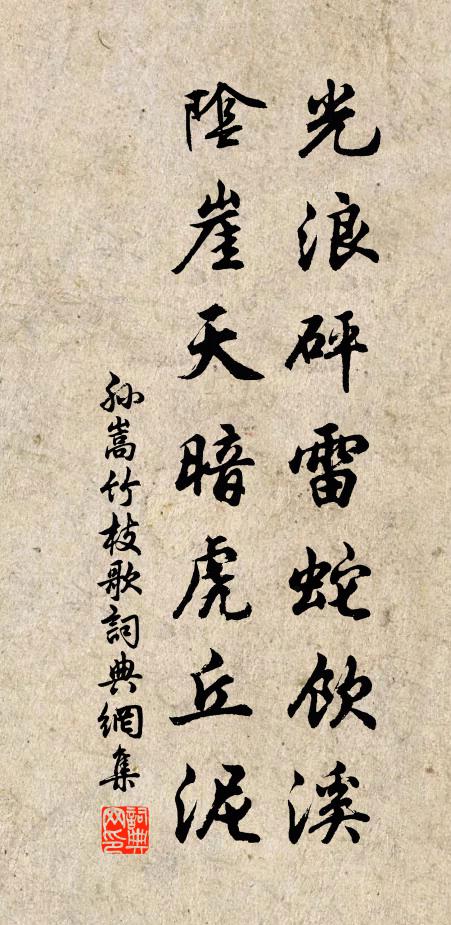 光浪砰雷蛇飲溪
陰崖天暗虎丘泥
孫嵩竹枝歌詞典網集
詞典網印